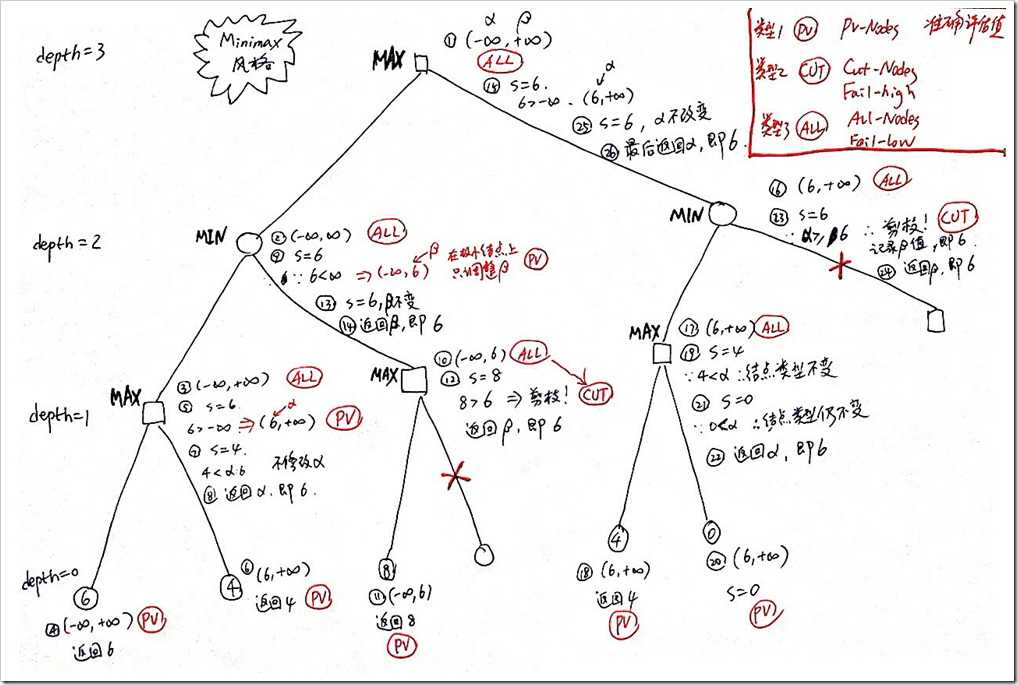 depth=3
Minimax
风格
α β
MAX
① (-∞,+∞)
ALL
⑮ S=6.
α
6>-∞. (6,+∞)
㉕ S=6, α不改变
㉖ 最后返回α,即6.
类型1 PV PV-Nodes 准确评估值
类型2 CUT Cut-Nodes
Fail-high
类型3 ALL All-Nodes
Fail-low
depth=2
MIN
② (-∞,∞) ALL
⑨ S=6
∵ 6<∞ ⇒(-∞,6)
β 在极小结点上
只调整β PV
⑬ S=6,β不变
⑭ 返回β,即6
MIN
⑯ (6,+∞) ALL
㉓ S=6
∵ α≥β6 ∴ 剪枝! CUT
记录β值,即6.
㉔ 返回β,即6
depth=1
MAX
③ (-∞,+∞) ALL
⑤ S=6.
α
6>-∞ ⇒(6,+∞) PV
⑦ S=4.
4<α6 不修改α
⑧ 返回α.即6.
MAX
⑩ (-∞,6) ALL
⑫ S=8
8>6 ⇒ 剪枝! CUT
返回β,即6
MAX
⑰ (6,+∞) ALL
⑲ S=4
∵4<α ∴结点类型不变
㉑ S=0
∵0<α ∴结点类型仍不变
㉒ 返回α,即6
depth=0
6
④ (-∞,+∞) PV
返回6
4
⑥ (6,+∞)
返回4 PV
8
⑪ (-∞,6)
返回8
PV
4
⑱ (6,+∞)
返回4
PV
0
⑳ (6,+∞)
S=0
PV